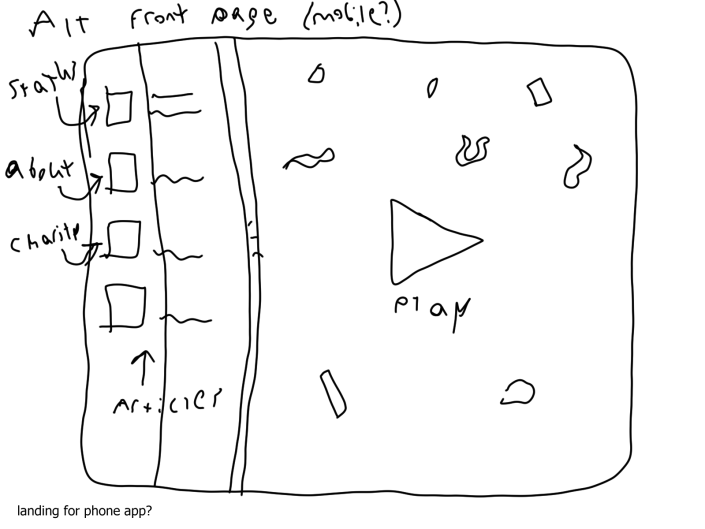 Alt front page (mobile?)
status
about
charity
play
Articles
landing for phone app?